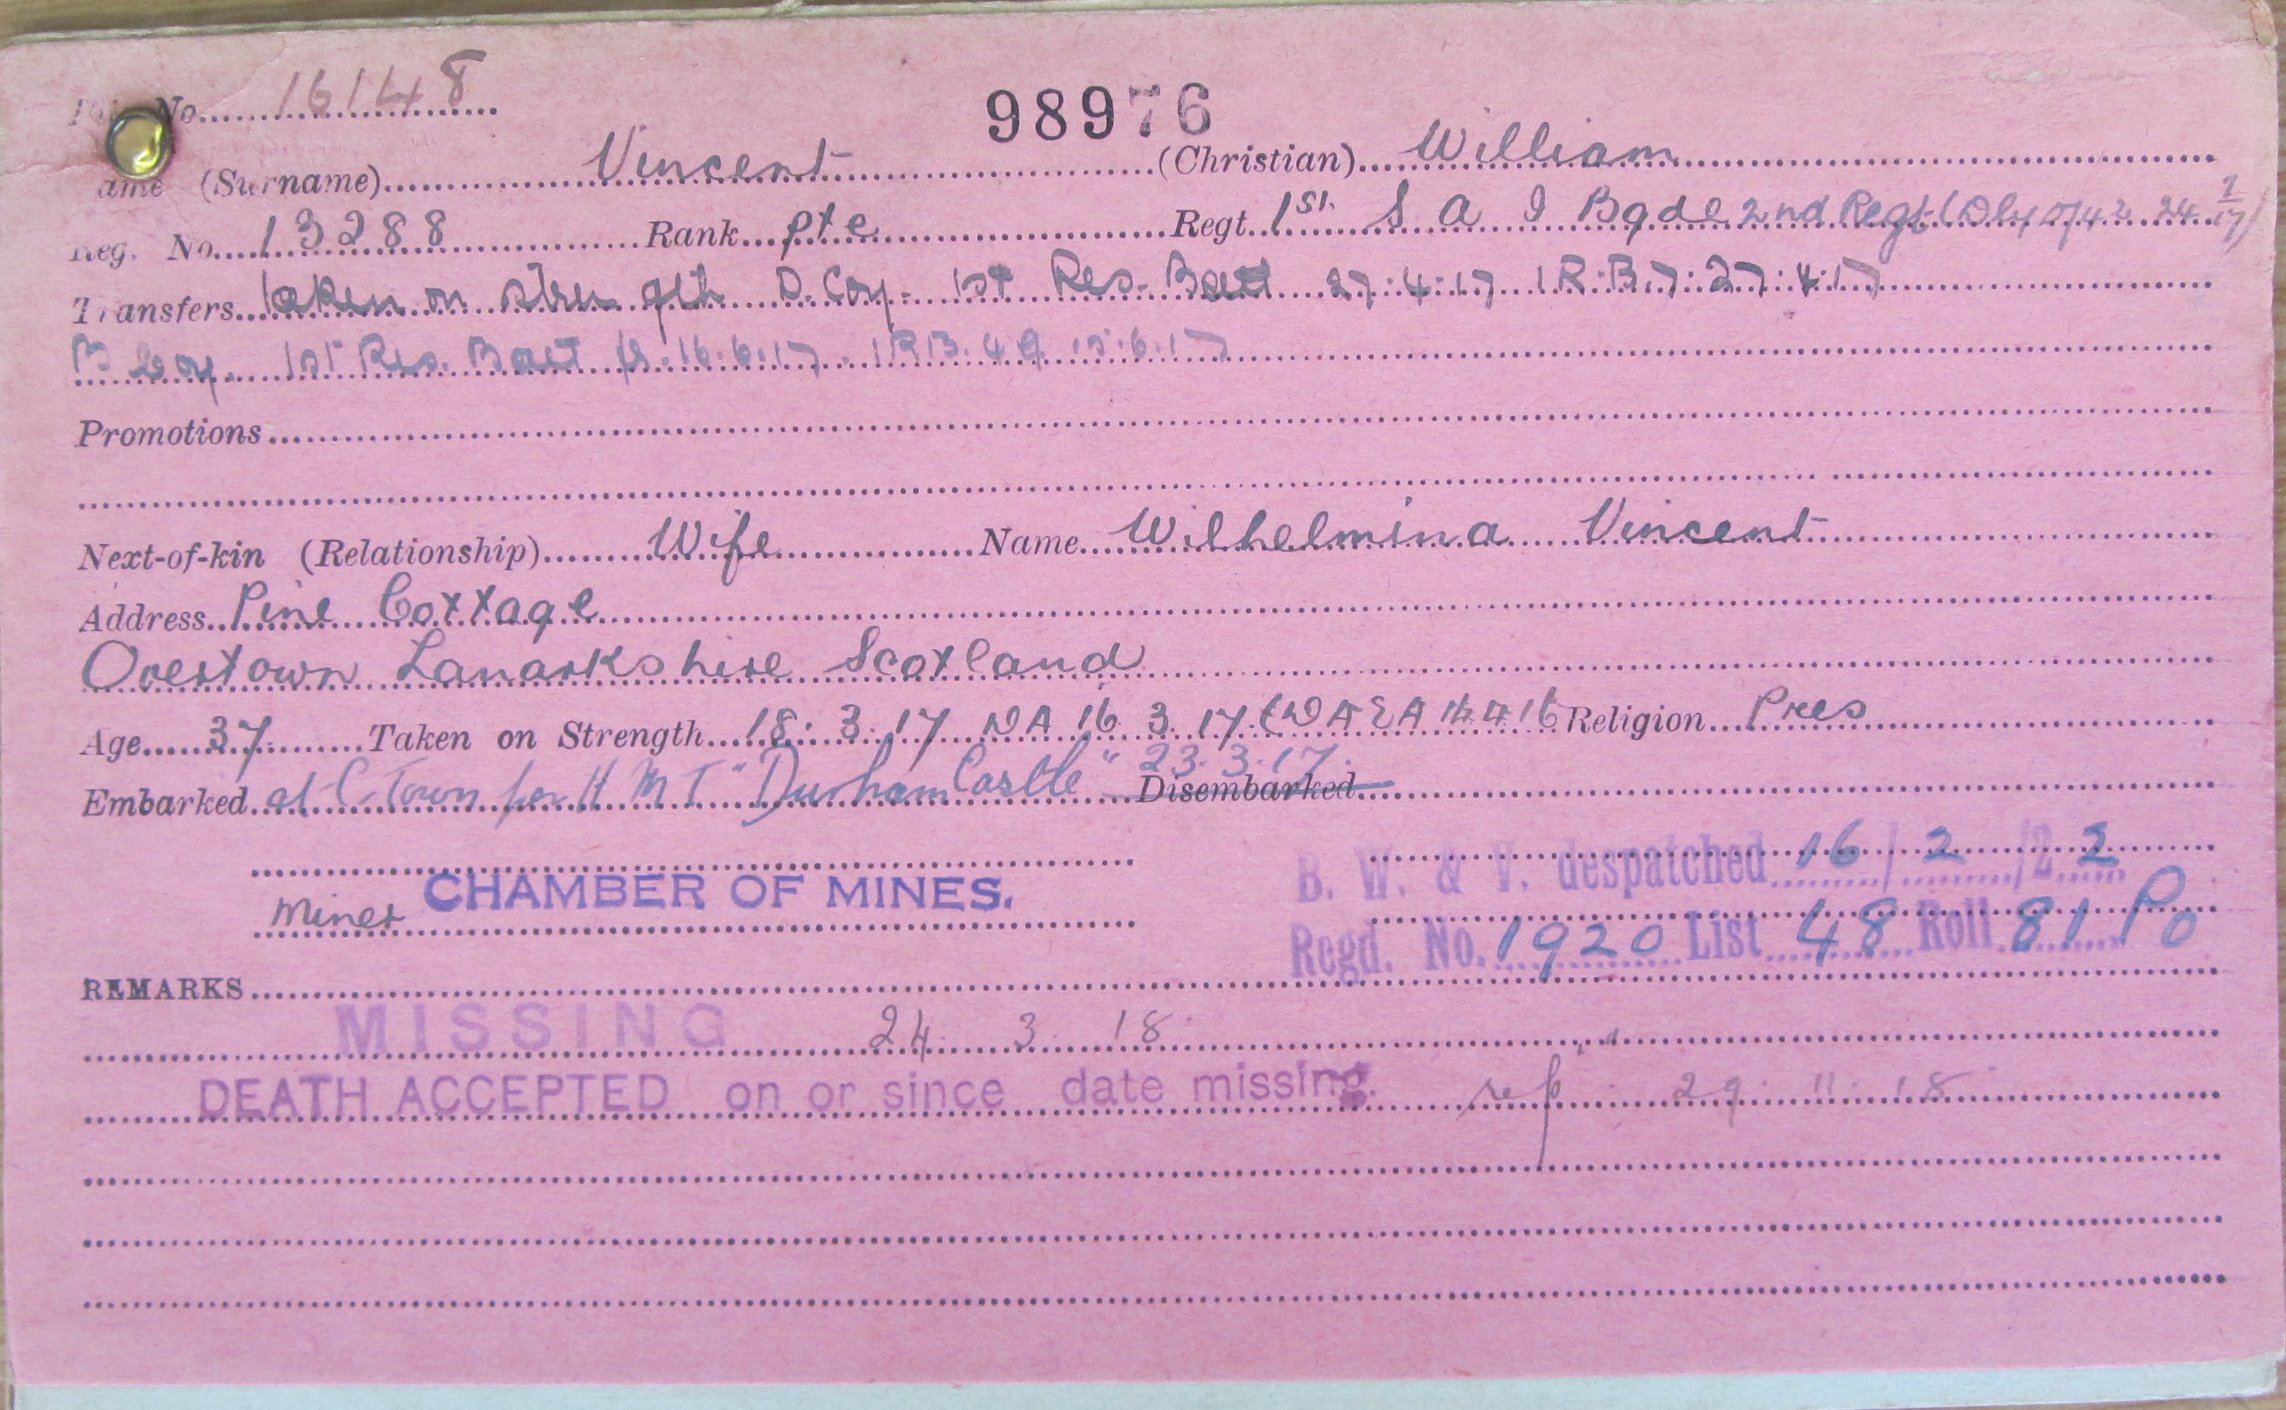 No. 16148
98976
(Surname) Vincent (Christian) William
Reg. No. 13288 Rank pte Regt. 1st. S A I Bgde 2nd Regt
Transfers taken on strength D. Coy. 1st Res. Batt 27:4:17 1 R:B.7:27:4:17
B Coy. 1st Res. Batt 16:6:17 1RB. 49 15:6:17
Promotions
Next-of-kin (Relationship) Wife Name Wilhelmina Vincent
Address Pine Cottage
Overtown Lanarkshire Scotland
Age 37 Taken on Strength 18. 3. 17 DA 16 3. 17 Religion Pres
Embarked at C. Town per H M T "Durham Castle" 23. 3. 17. Disembarked
B. W. & V. despatched 16/2/22
Miner CHAMBER OF MINES.
Regd. No. 1920 List 48 Roll 81 Po
REMARKS
MISSING 24. 3. 18
DEATH ACCEPTED on or since date missing. 29. 11. 18